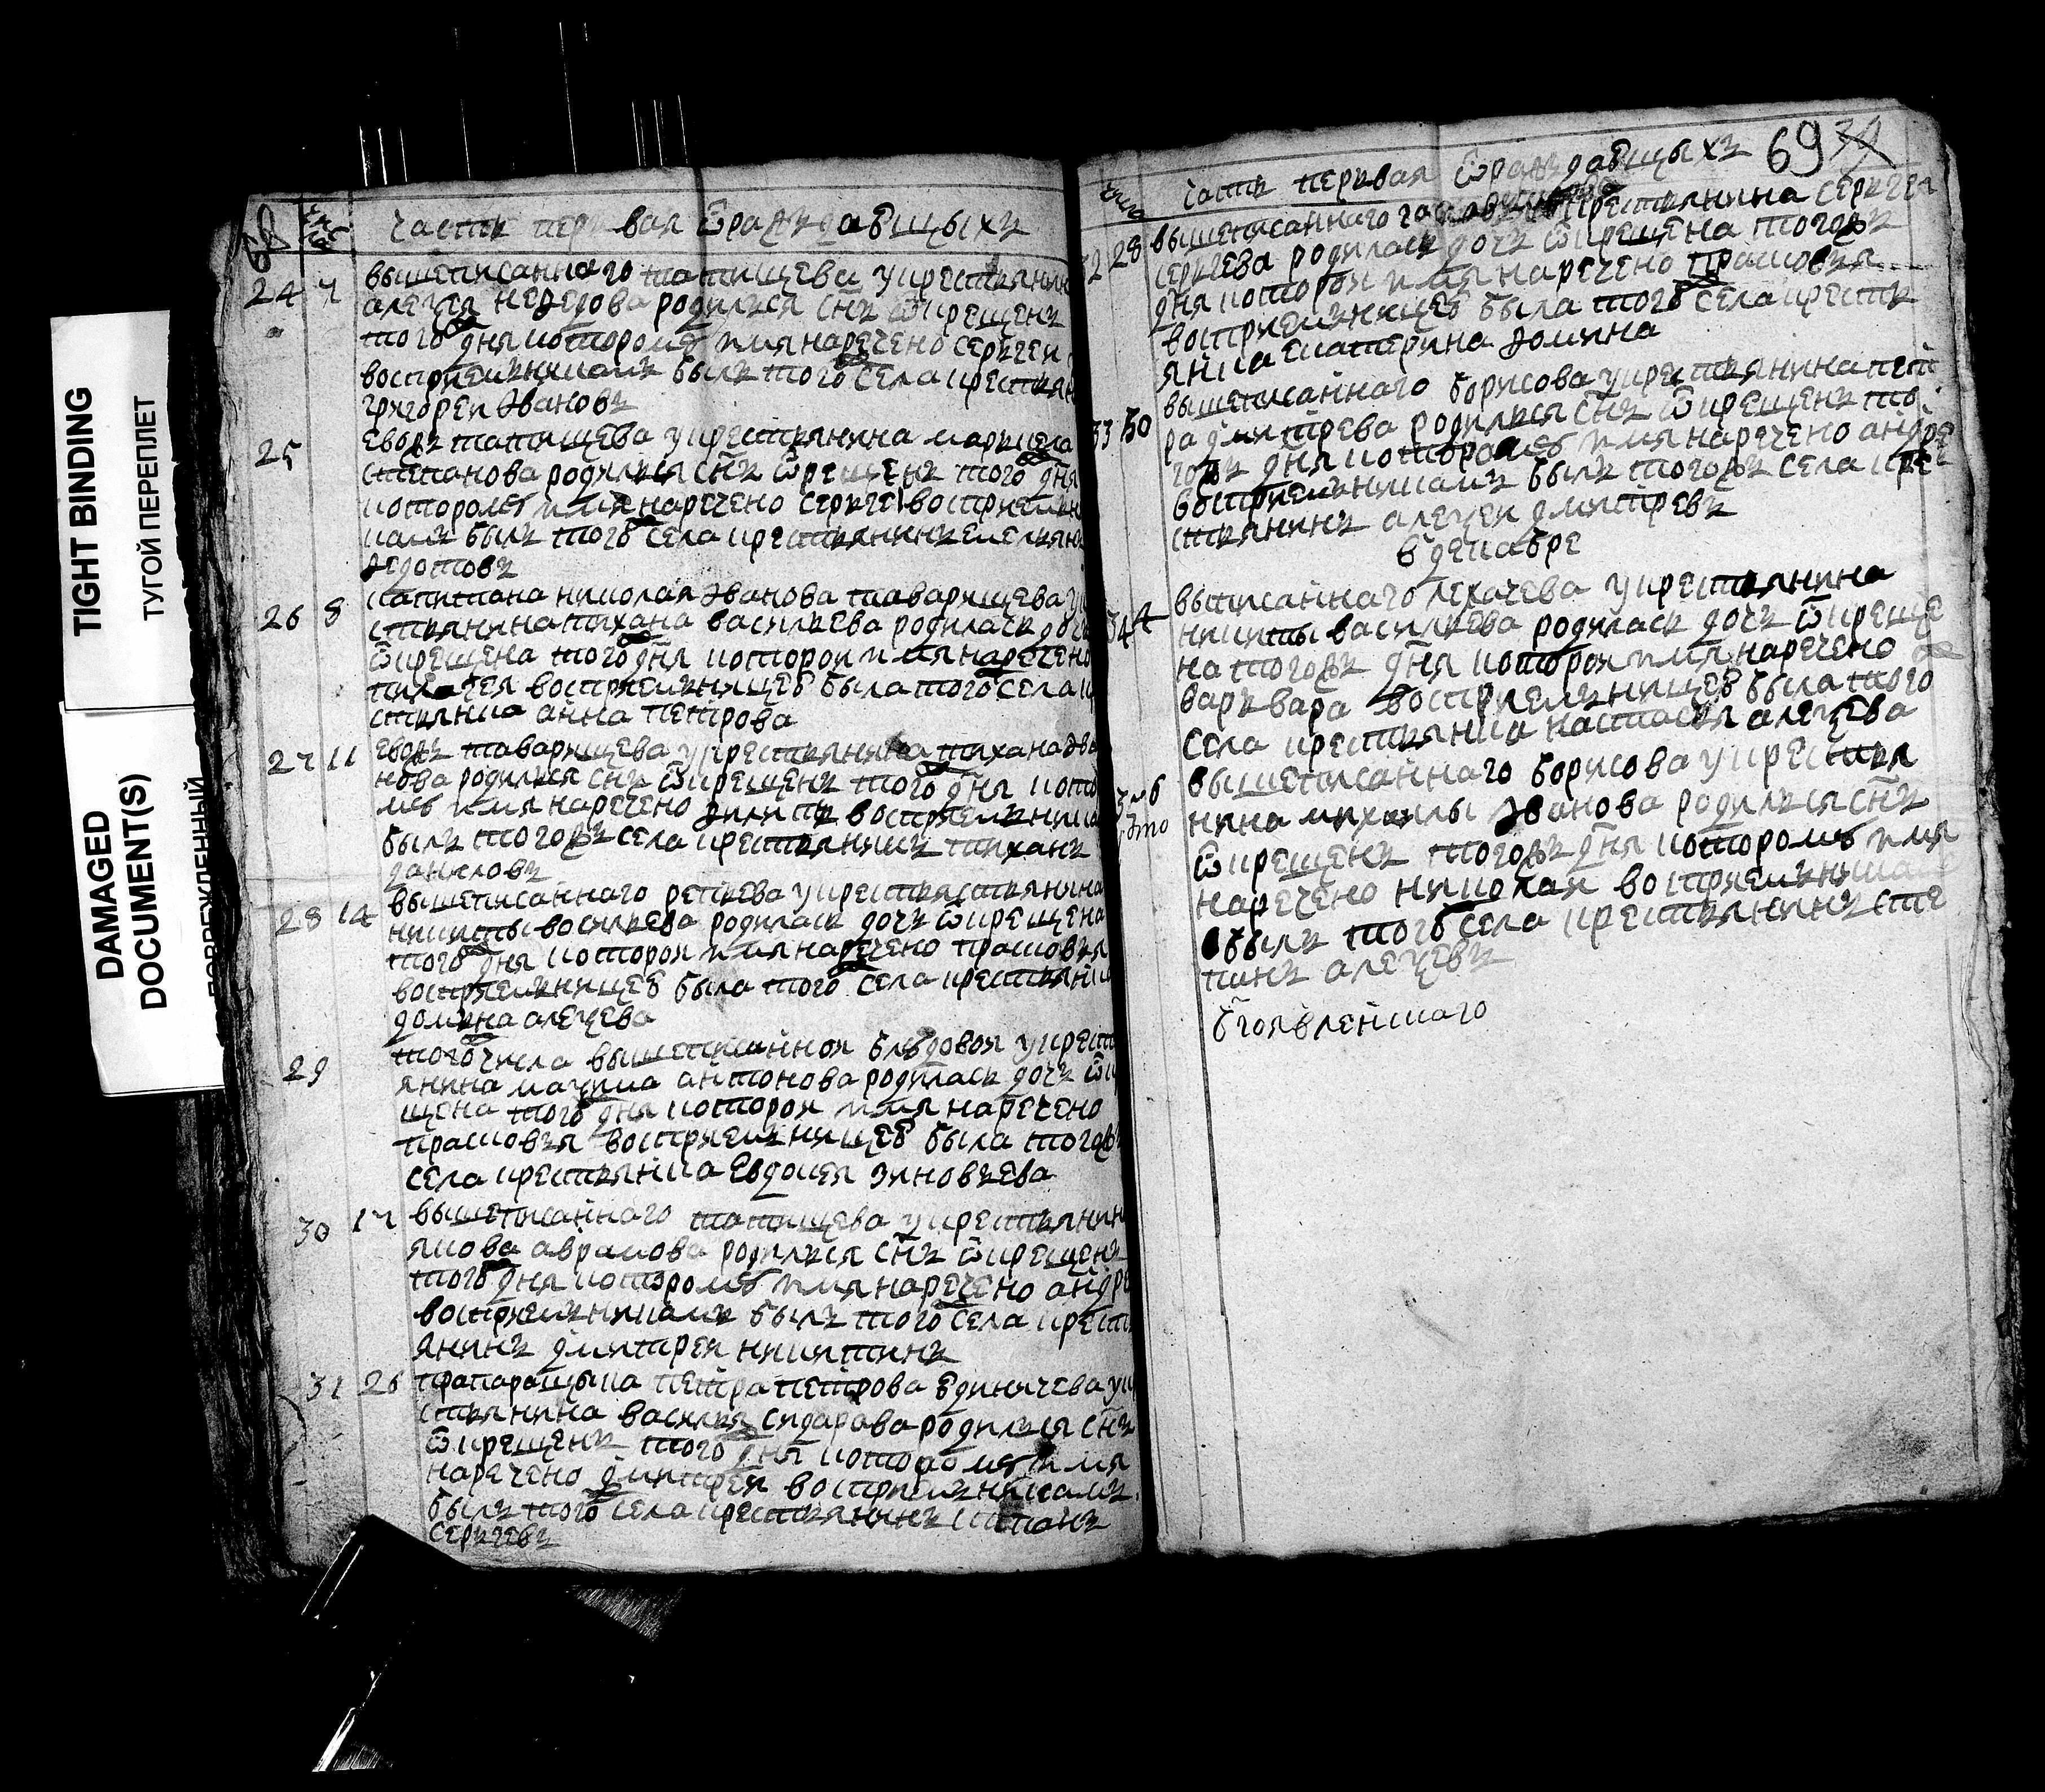 TIGHT BINDING
ТУГОЙ ПЕРЕПЛЕТ
DAMAGED
DOCUMENT(S)
ПОВРЕЖДЕННЫЙ
68
числа
часть первая ѡраждающыхъ
24 7 вышеписанного татищева укрестьянин
алеѯея недова родился снъ ѡкрещенъ
того дня которомѹ имя наречено сергеи
восприемникомъ былъ того села крестьян
григореи Иванов
25 евож татищева укрестьянина маркела
степанова родился снъ ѡкрещенъ того дня
которомѹ имя наречено сергеи восприемни
комъ былъ того села крестьянинъ емельян
Федотовъ
26 8 капитана николая Иванова таварищева ук
стьянина тихана васильева родилась доч
ѡкрещена того дня которои имя наречено
пилагея восприемницеѹ была того села к
стьянка анна петрова
27 11 евож таварищева укрестьянина тихана Ива
нова родился снъ ѡкрещенъ того дня кото
мѹ имя наречено Филипъ восприемник
былъ тогож села крестьянинъ тиханъ
даниловъ
28 14 вышеписанного репьева укрестьястьянина
никиты васильева родилась дочь ѡкрещена
того дня которои имя наречено прасковья
восприемницеѹ была того села крестьянк
домна алеѯева
29 того числа вышеписаннои блѣдовои укрест
янина макѯима антонова родилась дочь ѡк
щена того дня которои имя наречено
прасковья восприемницеѹ была тогож
села крестьянка Евдокея зиновьева
30 17 вышеписанного татищева укрестьянин
якова аврамова родился снъ ѡкрещенъ
того дня которомѹ имя наречено андр
восприемникомъ былъ того села крест
янинъ дмитреи никитинъ
31 26 прапаращыка петра петрова Единачева ук
стьянина василья сидарава родился снъ
ѡкрещенъ того дня которомѹ имя
наречено дмитреи восприемникамъ
былъ того села крестьянинъ
сергеевъ
69
числа
часть первая ѡраждающыхъ
32 28 вышеписанного крестьянина сергея
сергеева родилась дочь ѡкрещена тогож
дня которои имя наречено прасковья
восприемницеѹ была того села кресть
янка екатерина Фомина
33 30 вышеписанного борисова укрестьянина пет
ра дмитрева родился снъ ѡкрещенъ то
гож дня которомѹ имя наречено андре
восприемникамъ былъ тогож села кре
стьянинъ алеѯеи дмитревъ
в декабре
34 4 выписанного лехачева укрестьянина
никиты васильева родилась дочь ѡкреще
на тогож дня которои имя наречено
варьвара восприемницеѹ была того
села крестьянка настасья алеѯева
35 6 вышеписанного борисова укрестья
нина михаилы Иванова родился снъ
ѡкрещенъ тогож дня которомѹ имя
наречено николаи восприемником
былъ того села крестьянинъ сте
панъ алеѯевъ
бгоявленскаго